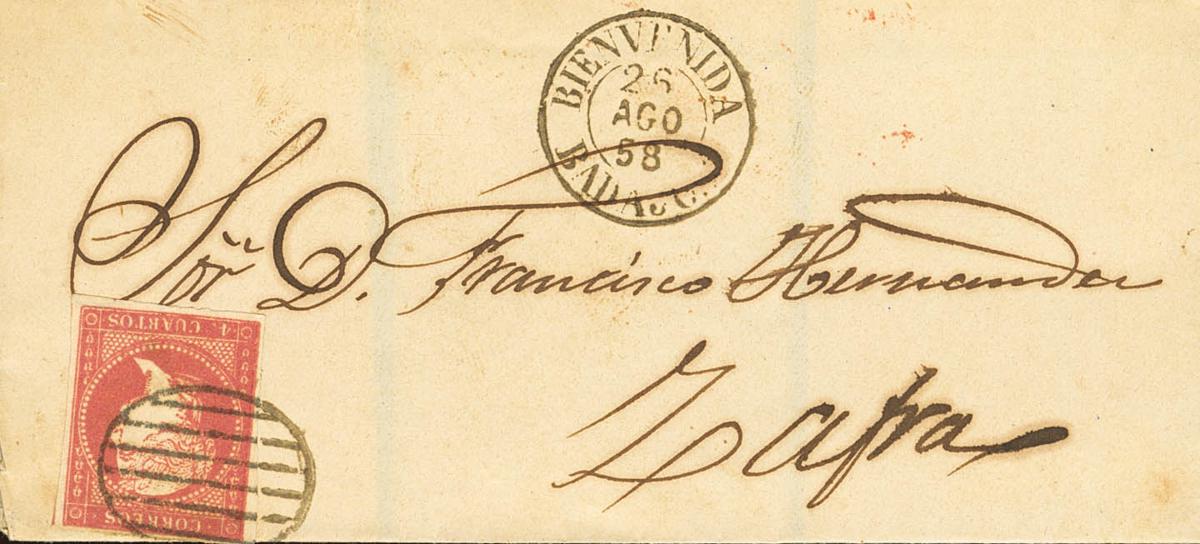 BIENVENIDA
26
AGO
58
BADAJ.
Sõr D. Francisco Hernandez
Zafra
4 CUARTOS
CORREOS